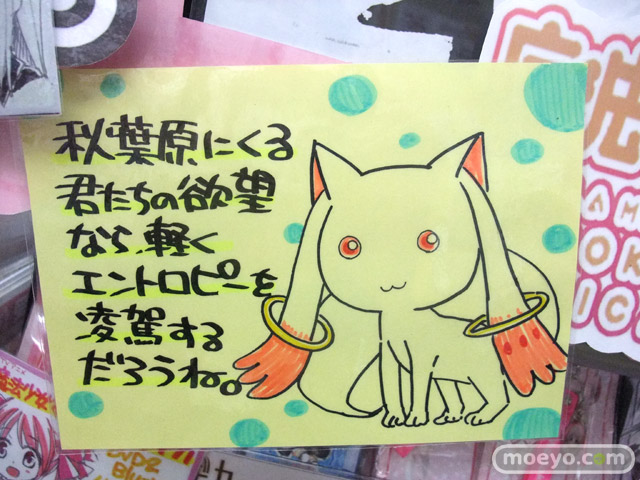 秋葉原にくる
君たちの欲望
なら、軽く
エントロピーを
凌駕する
だろうね。
moeyo.com